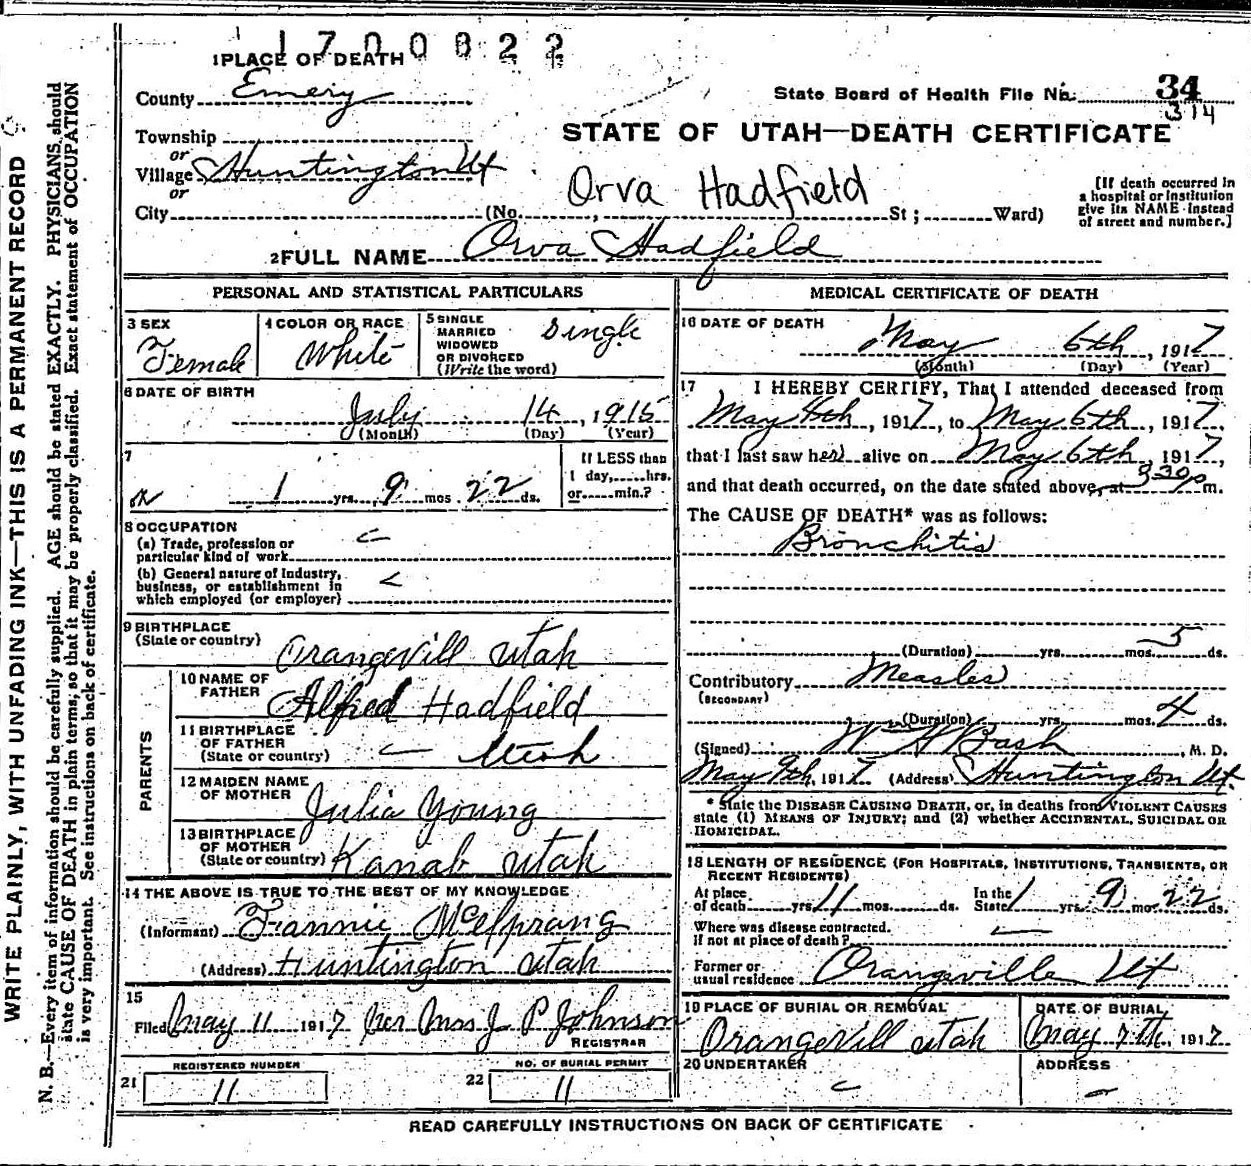 1700822
1 PLACE OF DEATH
County Emery
State Board of Health File No. 34
314
Township
or
STATE OF UTAH—DEATH CERTIFICATE
Village Huntington Ut
or
Orva Hadfield
City (No. , St ; Ward)
[If death occurred in
a hospital or institution
give its NAME instead
of street and number.]
2 FULL NAME Orva Hadfield
PERSONAL AND STATISTICAL PARTICULARS
3 SEX
Female
4 COLOR OR RACE
White
5 SINGLE
MARRIED
WIDOWED
OR DIVORCED
(Write the word)
Single
6 DATE OF BIRTH
July 14, 1915
(Month) (Day) (Year)
7
1 yrs. 9 mos 22 ds.
If LESS than
1 day, hrs.
or min.?
8 OCCUPATION
(a) Trade, profession or
particular kind of work
(b) General nature of Industry,
business, or establishment in
which employed (or employer)
9 BIRTHPLACE
(State or country) Orangevill Utah
PARENTS
10 NAME OF
FATHER Alfred Hadfield
11 BIRTHPLACE
OF FATHER
(State or country) Utah
12 MAIDEN NAME
OF MOTHER Julia Young
13 BIRTHPLACE
OF MOTHER
(State or country) Kanab Utah
14 THE ABOVE IS TRUE TO THE BEST OF MY KNOWLEDGE
(Informant) Fannie McElprang
(Address) Huntington Utah
15
Filed May 11 1917 per Mrs J P Johnson
REGISTRAR
REGISTERED NUMBER
21 11
NO. OF BURIAL PERMIT
22 11
MEDICAL CERTIFICATE OF DEATH
16 DATE OF DEATH
May 6th, 1917
(Month) (Day) (Year)
17 I HEREBY CERTIFY, That I attended deceased from
May 4th, 1917, to May 6th, 1917,
that I last saw her alive on May 6th, 1917,
and that death occurred, on the date stated above, at 3 30 p m.
The CAUSE OF DEATH* was as follows:
Bronchitis
(Duration) yrs. mos. 5 ds.
Contributory Measles
(SECONDARY)
(Duration) yrs. mos. 4 ds.
(Signed) Wm H Bash, M. D.
May 9th, 1917 (Address) Huntington Ut.
* State the DISEASE CAUSING DEATH, or, in deaths from VIOLENT CAUSES
state (1) MEANS OF INJURY; and (2) whether ACCIDENTAL, SUICIDAL OR
HOMICIDAL.
18 LENGTH OF RESIDENCE (FOR HOSPITALS, INSTITUTIONS, TRANSIENTS, OR
RECENT RESIDENTS)
At place
of death yrs 11 mos. ds.
In the
State 1 yrs. 9 mos 22 ds.
Where was disease contracted.
if not at place of death?
Former or
usual residence Orangeville Ut
19 PLACE OF BURIAL OR REMOVAL
Orangevill Utah
DATE OF BURIAL
May 7th, 1917
20 UNDERTAKER
ADDRESS
READ CAREFULLY INSTRUCTIONS ON BACK OF CERTIFICATE
WRITE PLAINLY, WITH UNFADING INK—THIS IS A PERMANENT RECORD
N. B.—Every item of information should be carefully supplied. AGE should be stated EXACTLY. PHYSICIANS should
state CAUSE OF DEATH in plain terms, so that it may be properly classified. Exact statement of OCCUPATION
is very important. See instructions on back of certificate.